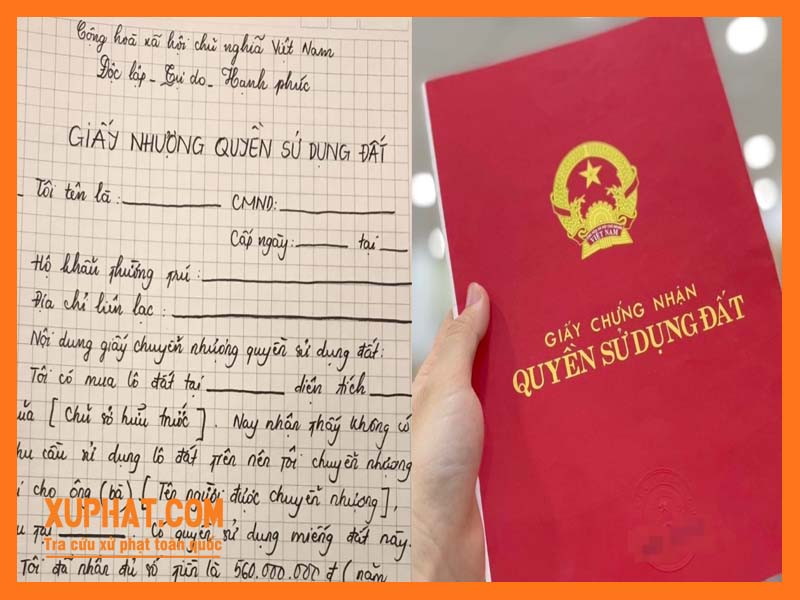 Cộng hoà xã hội chủ nghĩa Việt Nam
Độc lập - Tự do - Hạnh phúc
GIẤY NHƯỢNG QUYỀN SỬ DỤNG ĐẤT
Tôi tên là: CMND:
Cấp ngày: tại
Hộ khẩu thường trú:
Địa chỉ liên lạc:
Nội dung giấy chuyển nhượng quyền sử dụng đất:
Tôi có mua lô đất tại diện tích
của [Chủ sở hữu trước]. Nay nhận thấy không có
nhu cầu sử dụng lô đất trên nên tôi chuyển nhượng
cho ông (bà) [Tên người được chuyển nhượng],
tại Có quyền sử dụng miếng đất này.
Tôi đã nhận đủ số tiền là 560.000.000 đ (năm
XUPHAT.COM
Tra cứu xử phạt toàn quốc
VIỆT NAM
GIẤY CHỨNG NHẬN
QUYỀN SỬ DỤNG ĐẤT